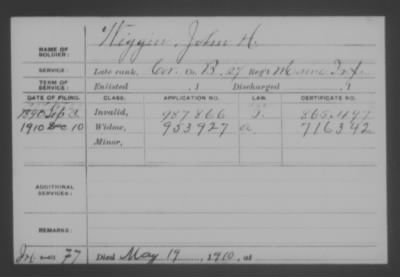 Wiggin, John H.
NAME OF SOLDIER:
SERVICE: Late rank, Cor. Co. B, 27 Reg't Maine Inf.
TERM OF SERVICE: Enlisted , 1 Discharged , 1
DATE OF FILING. CLASS. APPLICATION NO. LAW. CERTIFICATE NO.
1890 Sep 3 Invalid, 987866 865,497
1910 Dec 10 Widow, 953927 a 716342
Minor,
ADDITIONAL SERVICES:
REMARKS:
77 Died May 19, 1910, at